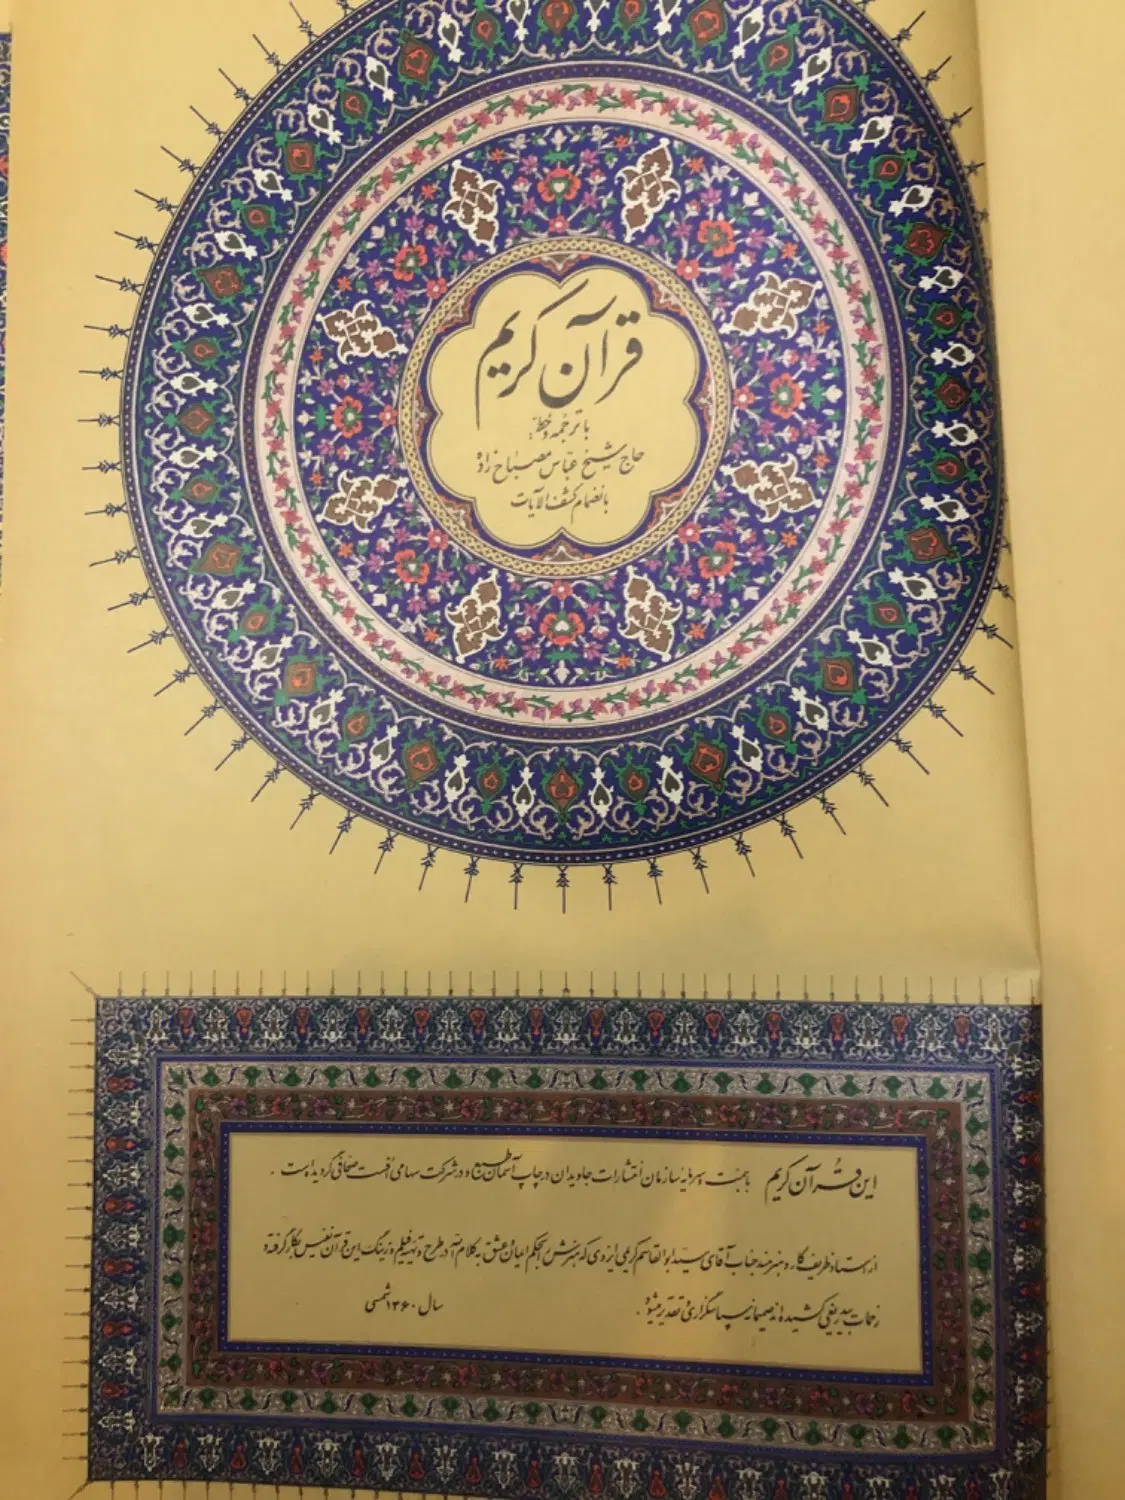 قرآن کریم
با ترجمه و خط:
حاج شیخ عباس مصباح زاده
بانضمام کشف الآیات
این قرآن کریم با همت و سرمایه سازمان انتشارات جاویدان در چاپ آسمان طبع و در شرکت سهامی افست صحافی گردیده است .
از استاد ظریف کار و هنرمند جناب آقای سید ابوالقاسم کریمی ایزدی که هنرش را بحکم ایمان و عشق به کلام الله در طرح و تهیه فیلم و رنگ این قرآن نفیس بکار گرفته و
زحمات بیدریغی کشیده اند صمیمانه سپاسگزاری و تقدیر میشود .
سال ۱۳۶۰ شمسی